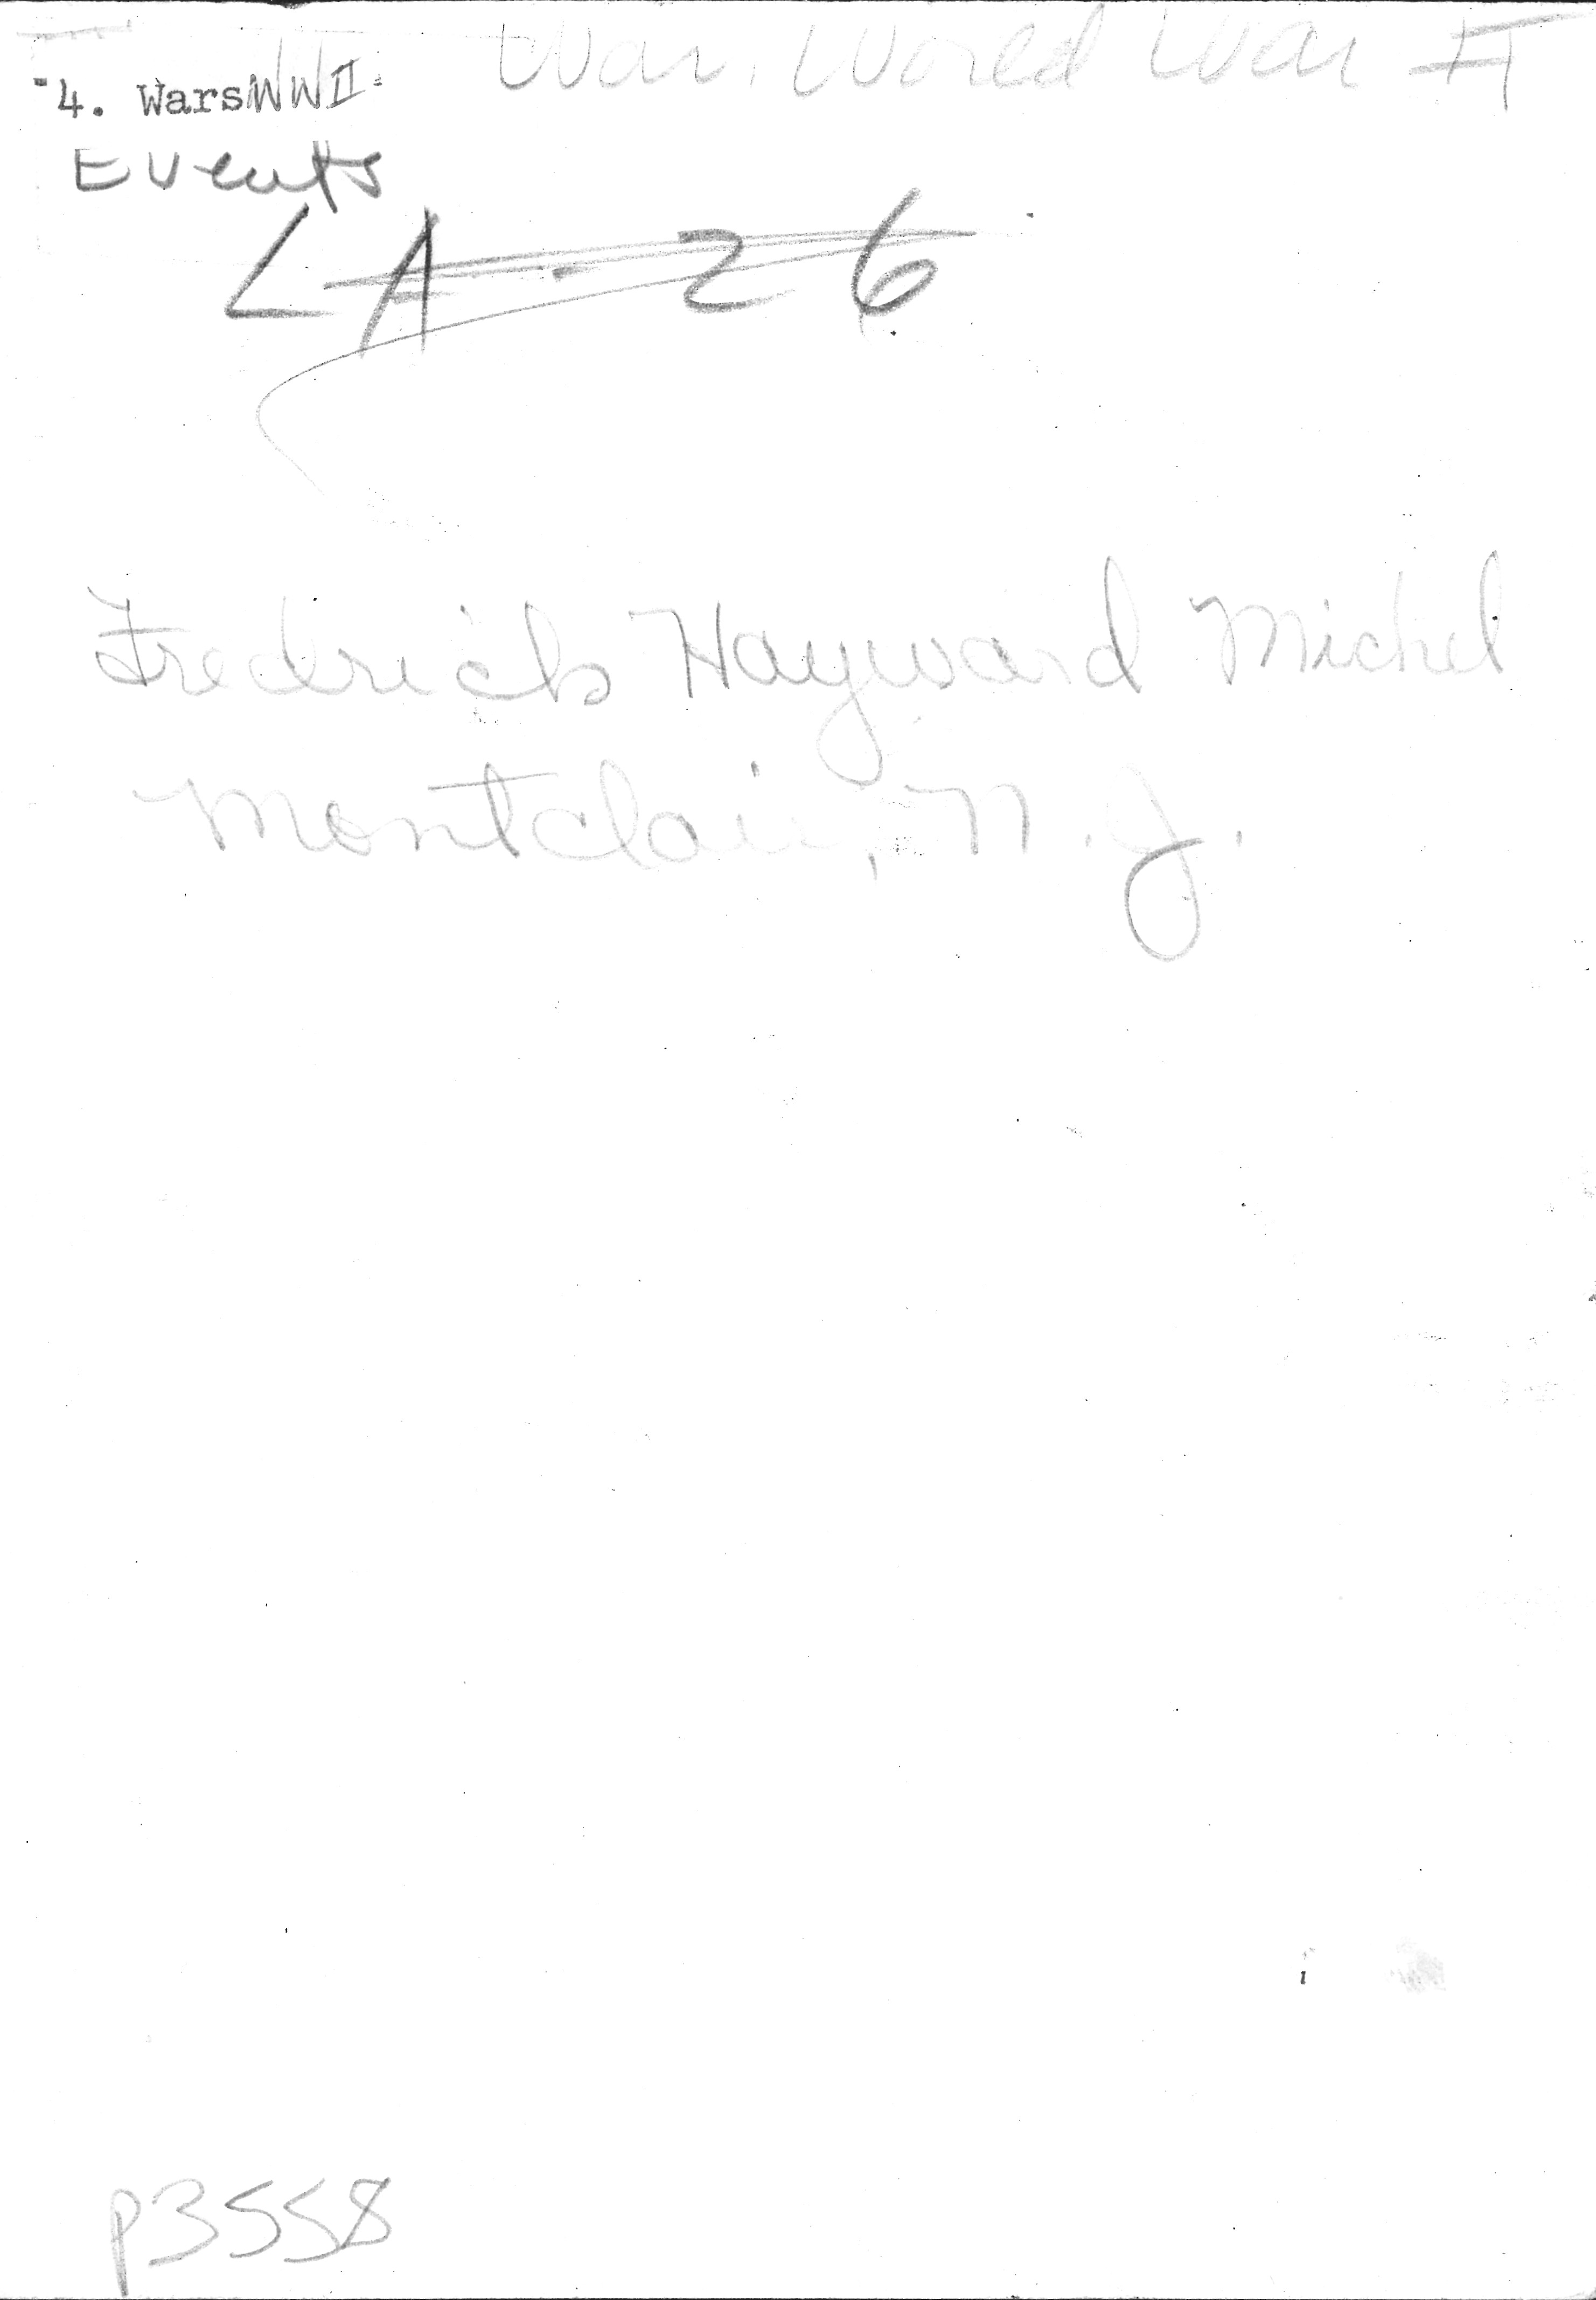 War. World War II
4. Wars WWII
Events
LA-26
Frederick Hayward Michel
Montclair, N.J.
P3558